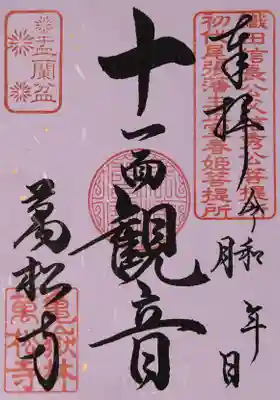 奉拝
令和 年 月 日
織田信長公父信秀公菩提所
初代尾張藩主正室春姫菩提所
十一面観音
盂蘭盆
萬松寺
亀嶽林
萬松寺